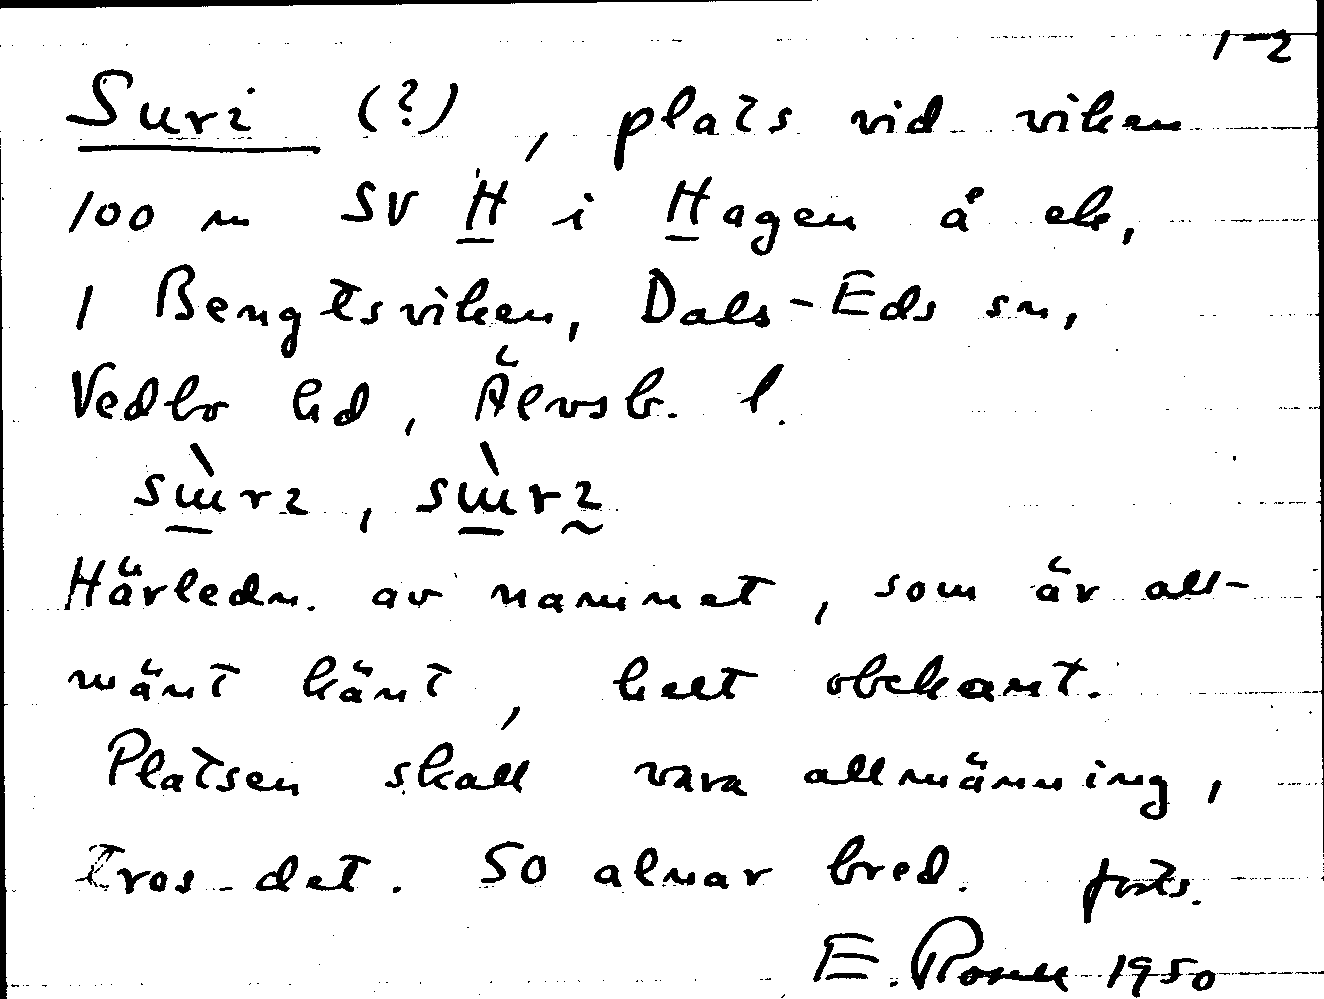 1-2
Suri (?), plats vid viken
100 m SV H i Hagen å ek,
1 Bengtsviken, Dals-Eds sn,
Vedbo hd, Älvsb. l.
Härledn. av namnet, som är all-
mänt känt, helt obekant.
Platsen skall vara allmänning,
tros det. 50 alnar bred. forts.
E. 1950